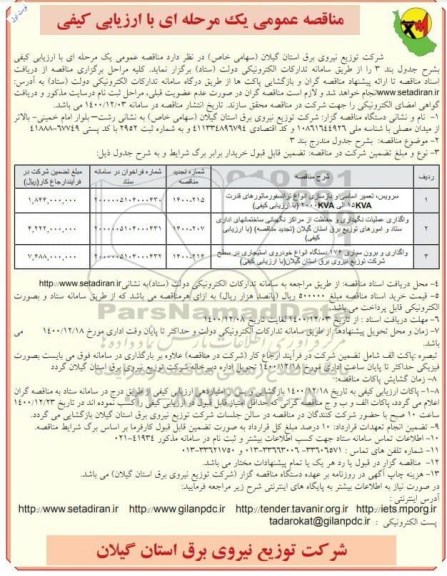 نوبت اول
مناقصه عمومی یک مرحله ای با ارزیابی کیفی
شرکت توزیع نیروی برق استان گیلان (سهامی خاص) در نظر دارد مناقصه عمومی یک مرحله ای با ارزیابی کیفی
بشرح جدول بند ۳ را از طریق سامانه تدارکات الکترونیکی دولت (ستاد) برگزار نماید. کلیه مراحل برگزاری مناقصه از دریافت
اسناد مناقصه تا ارائه پیشنهاد مناقصه گران و بازگشایی پاکت ها از طریق درگاه سامانه تدارکات الکترونیکی دولت (ستاد) به آدرس:
www.setadiran.ir انجام خواهد شد و لازم است مناقصه گران در صورت عدم عضویت قبلی، مراحل ثبت نام درسایت مذکور و دریافت
گواهی امضای الکترونیکی را جهت شرکت در مناقصه محقق سازند. تاریخ انتشار مناقصه در سامانه ۱۴۰۰/۱۲/۰۳ می باشد.
۱- نام و نشانی دستگاه مناقصه گزار: شرکت توزیع نیروی برق استان گیلان (سهامی خاص) به نشانی رشت– بلوار امام خمینی- بالاتر
از میدان مصلی با شناسه ملی ۱۰۸۶۱۶۴۴۹۲۶ و کد اقتصادی ۴۱۱۳۳۴۸۹۶۷۹۴ و شماره ثبت ۲۹۵۲ با کد پستی ۶۷۷۴۹-۴۱۸۸۸
۲- موضوع مناقصه: بشرح جدول مندرج بند ۳
۳- نوع و مبلغ تضمین شرکت در مناقصه: تضمین قابل قبول خریدار برابر برگ شرایط و به شرح جدول ذیل:
ردیف شرح مناقصه شماره تجدید مناقصه شماره فراخوان در سامانه ستاد مبلغ تضمین شرکت در فرآیندارجاع کار(ریال)
۱ سرویس، تعمیر اساسی و بازسازی انواع ترانسفورماتورهای قدرت ۲۵KVA الی ۲۰۰۰KVA (با ارزیابی کیفی) ۱۴۰۰-۲۱۵
۲ واگذاری عملیات نگهداری و حفاظت از مراکز نگهبانی ساختمانهای اداری ستاد و امورهای توزیع برق استان گیلان (تجدید مناقصه) (با ارزیابی کیفی) ۱۴۰۰-۲۰۷
۳ واگذاری و برون سپاری ۱۷۴ دستگاه انواع خودروی استیجاری در سطح شرکت توزیع نیروی برق استان گیلان(با ارزیابی کیفی) ۱۴۰۰-۲۱۴
۴- محل دریافت اسناد مناقصه: از طریق مراجعه به سامانه تدارکات الکترونیکی دولت (ستاد)به نشانی http://www.setadiran.ir
۵- قیمت خرید اسناد مناقصه مبلغ ۵۰۰۰۰۰ ریال (پانصد هزار ریال) به ازای هرمناقصه می باشد که از طریق سامانه ستاد و بصورت
الکترونیکی قابل پرداخت می باشد.
۶- مهلت دریافت اسناد مناقصه: از تاریخ ۱۴۰۰/۱۲/۰۳ لغایت تاریخ
۷- زمان و محل تحویل پیشنهادها: از طریق سامانه تدارکات الکترونیکی دولت و حداکثر تا پایان وقت اداری مورخ ۱۴۰۰/۱۲/۱۸ می
باشد.
تبصره:پاکت الف شامل تضمین شرکت در فرآیند ارجاع کار (شرکت در مناقصه) علاوه بر بارگذاری در سامانه فوق می بایست بصورت
فیزیکی حداکثر تا پایان ساعت اداری مورخ ۱۴۰۰/۱۲/۱۸ تحویل اداره دبیرخانه شرکت توزیع نیروی برق استان گیلان گردد
۸- زمان گشایش پاکات مناقصه:
۸-۱- پاکات ارزیابی کیفی به تاریخ ۱۴۰۰/۱۲/۱۸ بازگشایی و پس از امتیازدهی ارزیابی کیفی و از طریق درج در سامانه ستاد به مناقصه گران
اعلام می گردد، پاکات الف و ب و ج مناقصه گرانی که حداقل امتیاز قابل قبول از ارزیابی کیفی را کسب نموده اند در تاریخ ۱۴۰۰/۱۲/۲۳
ساعت ۱۰ صبح با حضور شرکت کنندگان در مناقصه در سالن جلسات شرکت توزیع نیروی برق استان گیلان بازگشایی می گردد.
۹- تضمین انجام تعهدات قرارداد: ۱۰ درصد مبلغ کل قرارداد به صورت تضمین قابل قبول کارفرما بر اساس برگ شرایط مناقصه.
۱۰- اطلاعات تماس سامانه ستاد جهت کسب اطلاعات بیشتر و ثبت نام در سامانه مذکور ۴۱۹۳۴-۰۲۱
۱۱- شماره تلفن های تماس :
۱۲- مناقصه گزار در قبول یا رد هر یک یا تمام پیشنهادات مختار می باشد.
۱۳- هزینه چاپ آگهی در روزنامه بر عهده دستگاه مناقصه گزار (شرکت توزیع نیروی برق استان گیلان) می باشد.
در صورت نیاز به اطلاعات بیشتر به پایگاه های اینترنتی شرح زیر مراجعه فرمایید:
آدرس اینترنتی :
http://www.setadiran.ir http://www.gilanpdc.ir http://tender.tavanir.org.ir http://iets.mporg.ir
پست الکترونیکی : tadarokat@gilanpdc.ir
شرکت توزیع نیروی برق استان گیلان